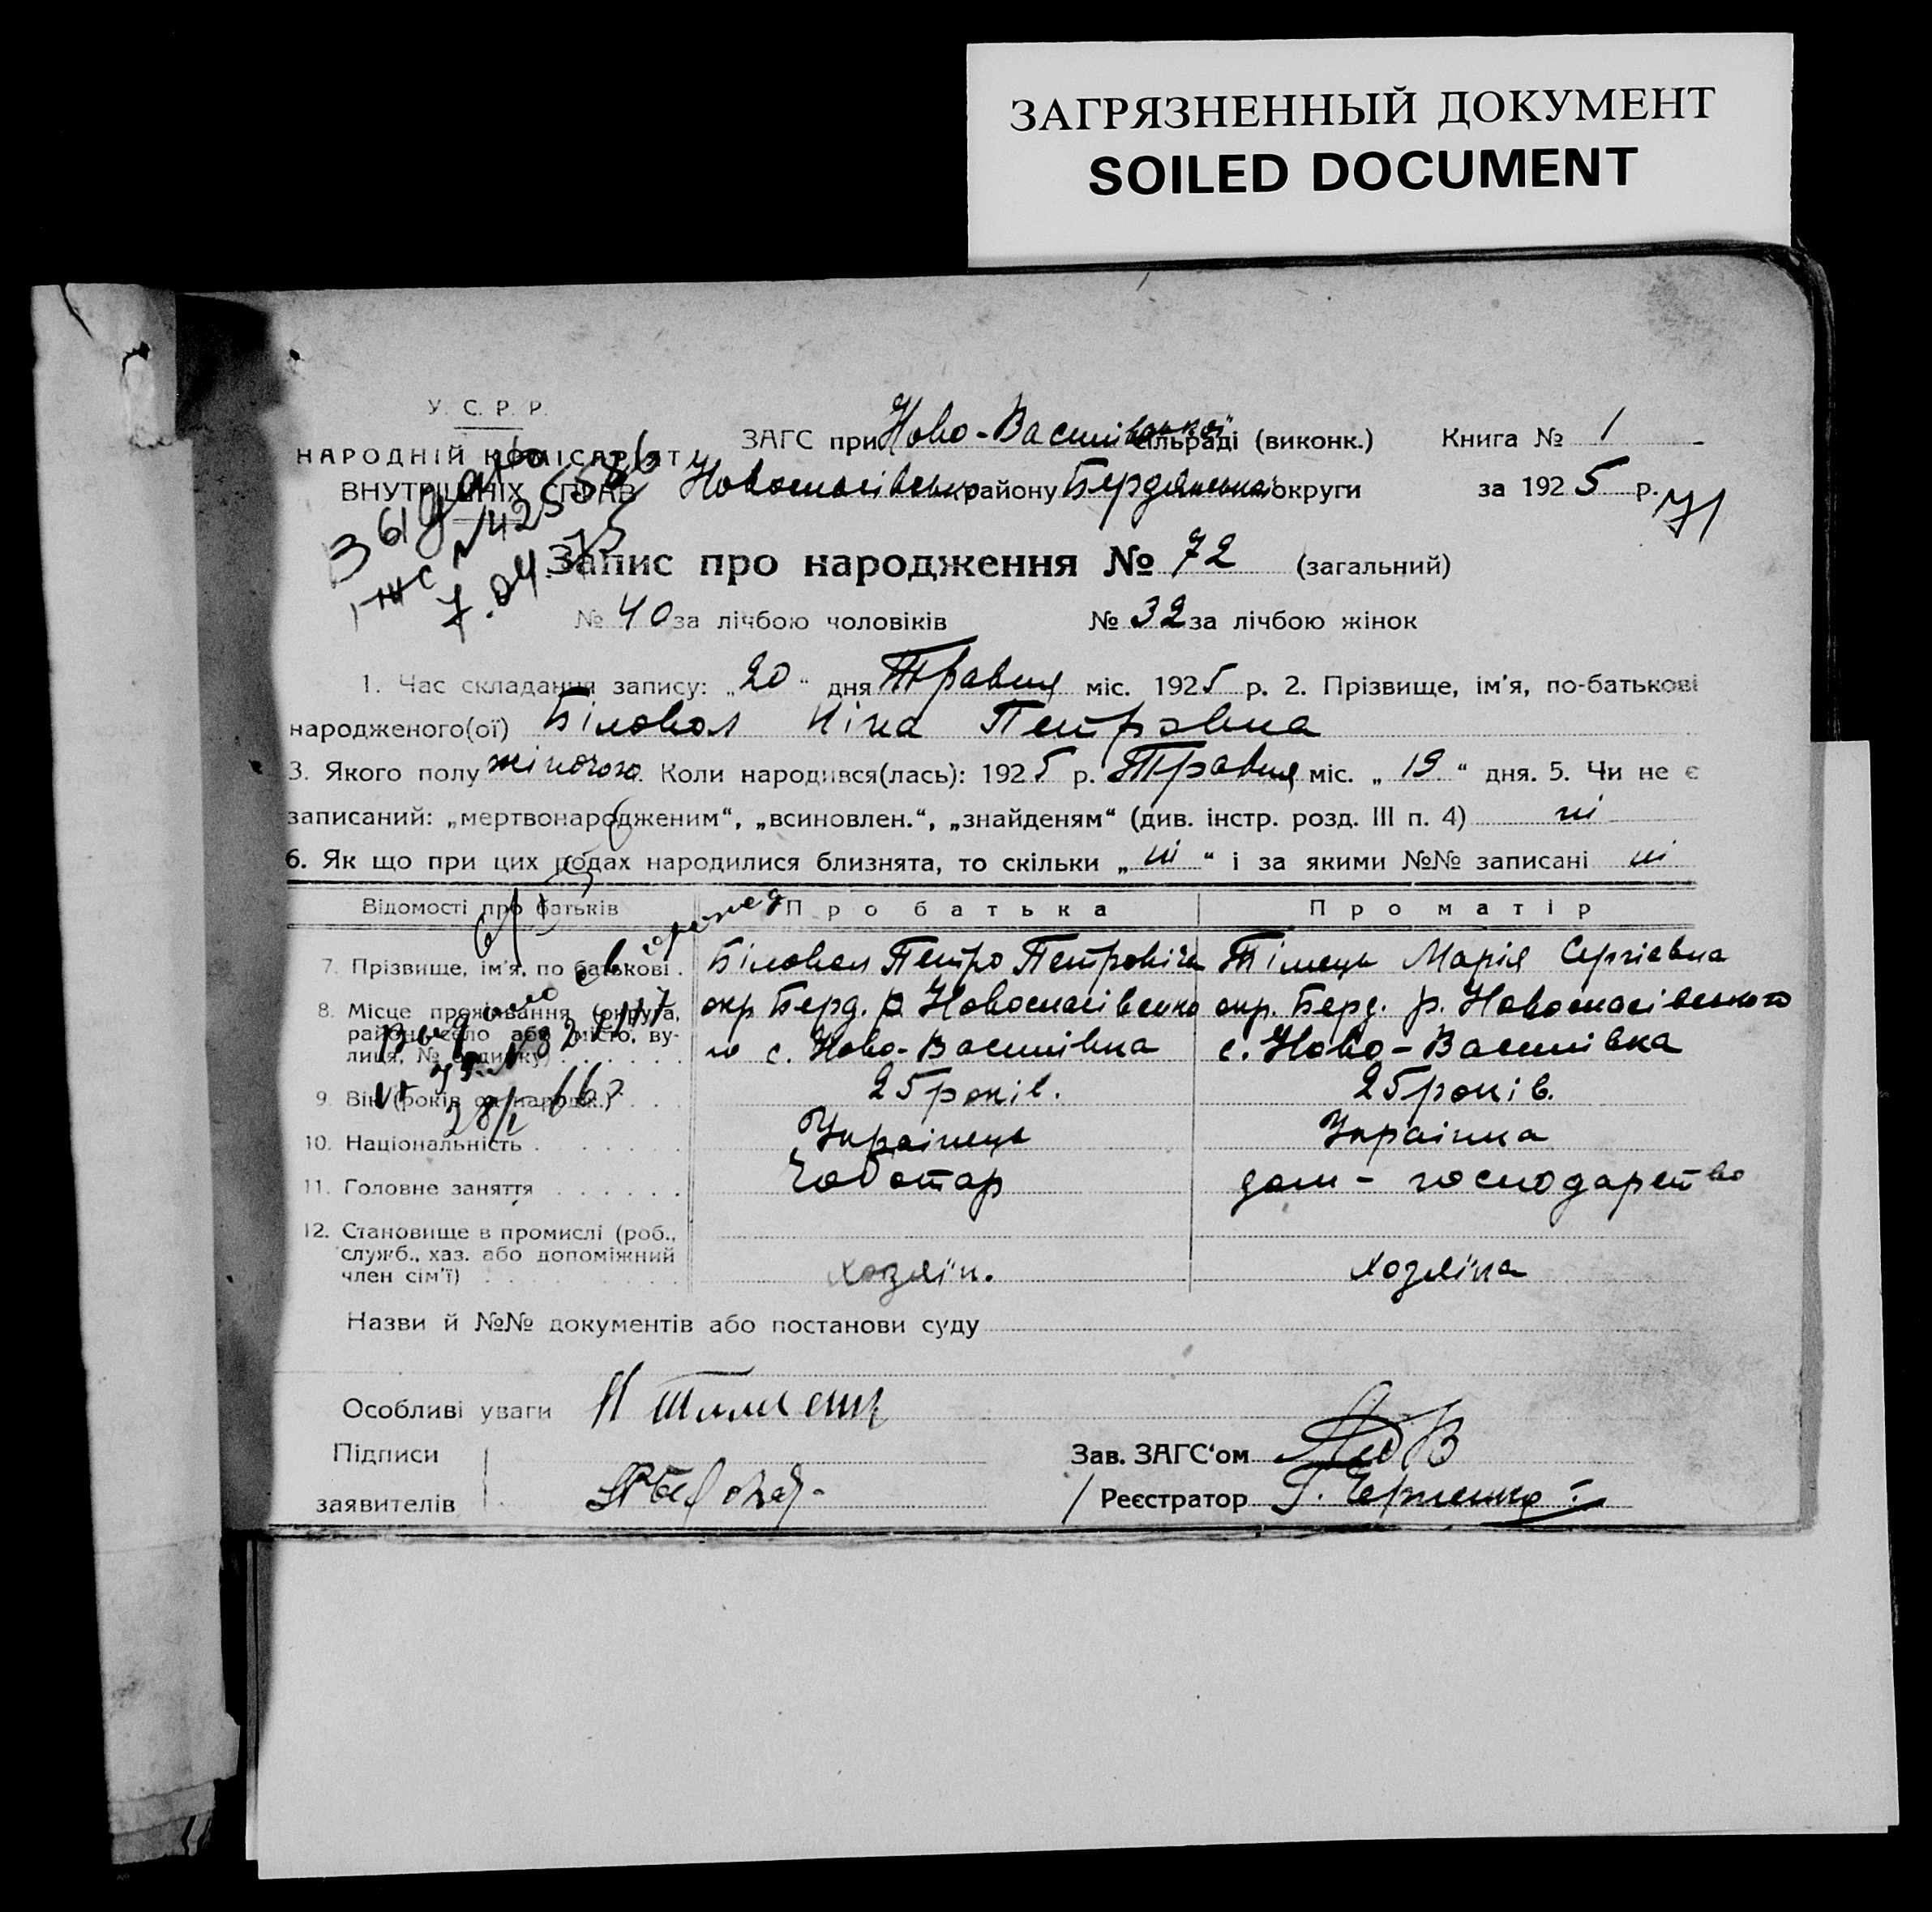 ЗАГРЯЗНЕННЫЙ ДОКУМЕНТ
SOILED DOCUMENT
У. С. Р. Р.
НАРОДНІЙ КОМІСАРІЯТ
ВНУТРІШНІХ СПРАВ
ЗАГС при Ново-Василівської сільраді (виконк.) Книга № 1
Новоспасівського району Бердянської округи за 1925 р.
71
Запис про народження № 72 (загальний)
№ 40 за лічбою чоловіків № 32 за лічбою жінок
1. Час складання запису: „20“ дня Травня міс. 1925 р. 2. Прізвище, ім'я, по-батькові
народженого(ої) Біловол Ніна Петровна
3. Якого полу жіночого. Коли народився(лась): 1925 р. Травня міс. „19“ дня. 5. Чи не є
записаний: „мертвонародженим“, „всиновлен.“, „знайденям“ (див. інстр. розд. III п. 4) ні
6. Як що при цих родах народилися близнята, то скільки „ні“ і за якими №№ записані ні
Відомості про батьків Про батька Про матір
7. Прізвище, ім'я, по батькові . Біловол Петро Петровіч Тімець Марія Сергієвна
8. Місце проживання (округа, окр. Берд. р. Новоспасівсько окр. Берд. р. Новоспасівського
район, село або місто, ву-
лиця, № будинку) го с. Ново-Василівка с. Ново-Василівка
9. Вік (років од народж.) 25 років. 25 років.
10. Національність Українець Українка
11. Головне заняття Чоботар дом-господарство
12. Становище в промислі (роб.,
служб., хаз. або допоміжний
член сім'ї) хозяїн. хозяїка
Назви й №№ документів або постанови суду
Особливі уваги
Підписи Зав. ЗАГС'ом
заявителів Реєстратор